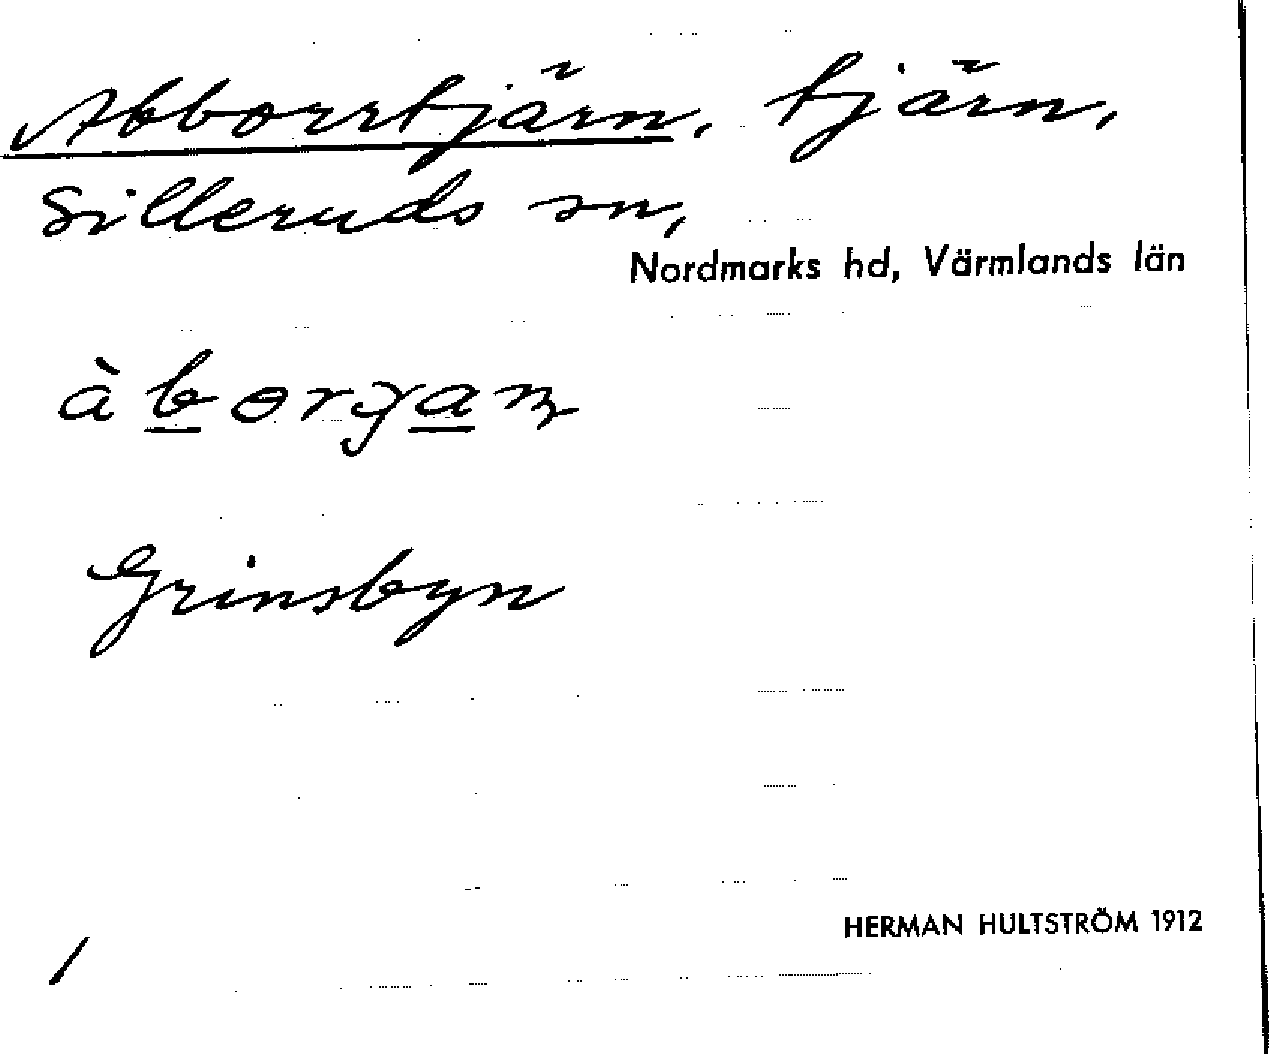 Abborrtjärn, tjärn,
Silleruds sn,
Nordmarks hd, Värmlands län
Grinsbyn
HERMAN HULTSTRÖM 1912
1